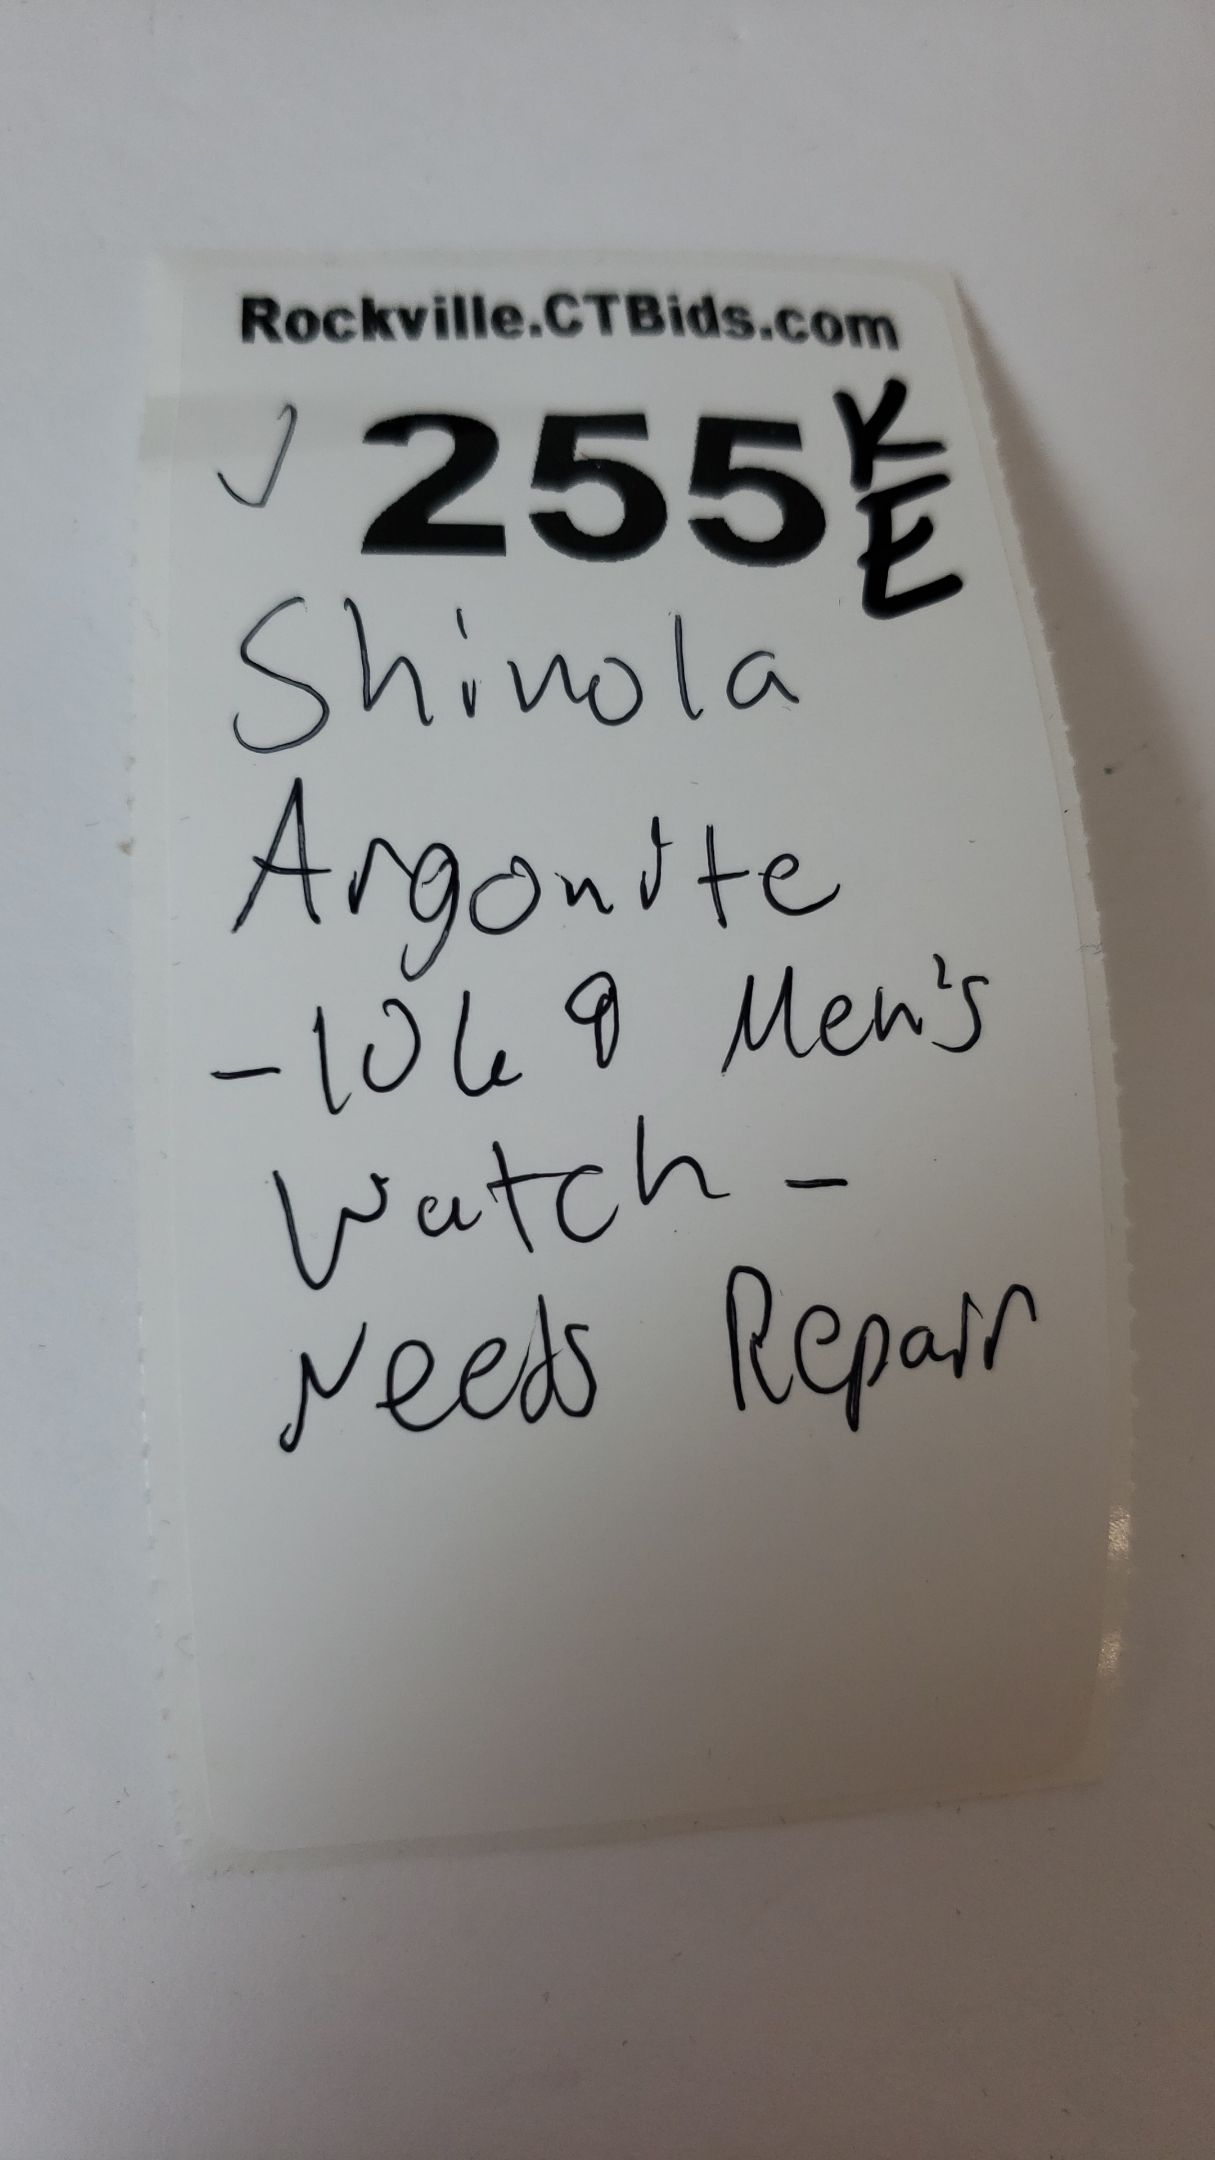 Rockville.CTBids.com
255 KE
Shinola
Argonite
-1069 Men's
Watch -
Needs Repair